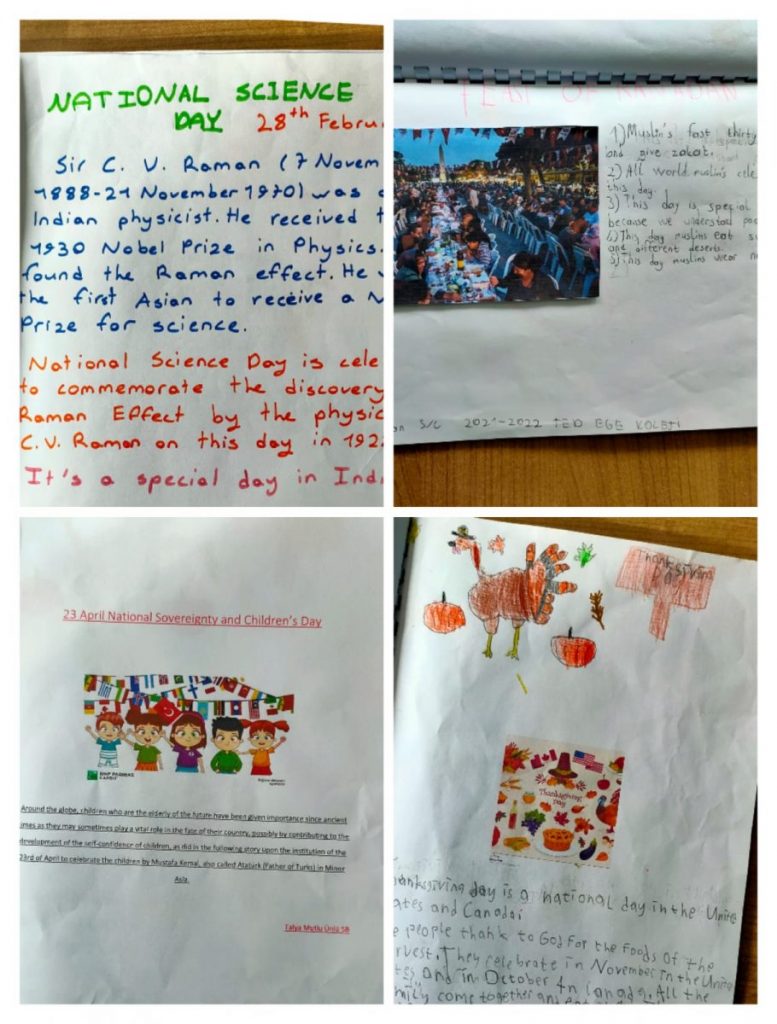 NATIONAL SCIENCE
DAY 28th Februa
Sir C. V. Raman (7 Novem
1888-21 November 1970) was
Indian physicist. He received t
1930 Nobel Prize in Physics.
found the Raman effect. He
the first Asian to receive a N
Prize for science.
National Science Day is cele
to commemorate the discovery
Raman Effect by the physic
C.V. Raman on this day in 192
It's a special day in Indi
FEAST OF RAMADAN
1) Muslim's fast thirty
and give zakat.
2) All world muslim's cele
this day.
3) This day is special
because we understand poo
4) This day muslims eat s
and different deserts.
5) This day muslims wear n
5/C 2021-2022 TED EGE KOLEJİ
23 April National Sovereignty and Children's Day
BNP PARIBAS
CARDIF
Around the globe, children who are the elderly of the future have been given importance since ancient
times as they may sometimes play a vital role in the fate of their country, possibly by contributing to the
development of the self-confidence of children, as did in the following story upon the institution of the
23rd of April to celebrate the children by Mustafa Kemal, also called Atatürk (Father of Turks) in Minor
Asia.
Talya Mutlu Ünlü 5B
Thanksgiving
DAY
Thanksgiving
Day
hanksgiving day is a national day in the Unite
ates and Canada.
e people thank to God for the foods of the
rvest. They celebrate in November in the Unite
tes and in October in Canada. All the
mily come together and